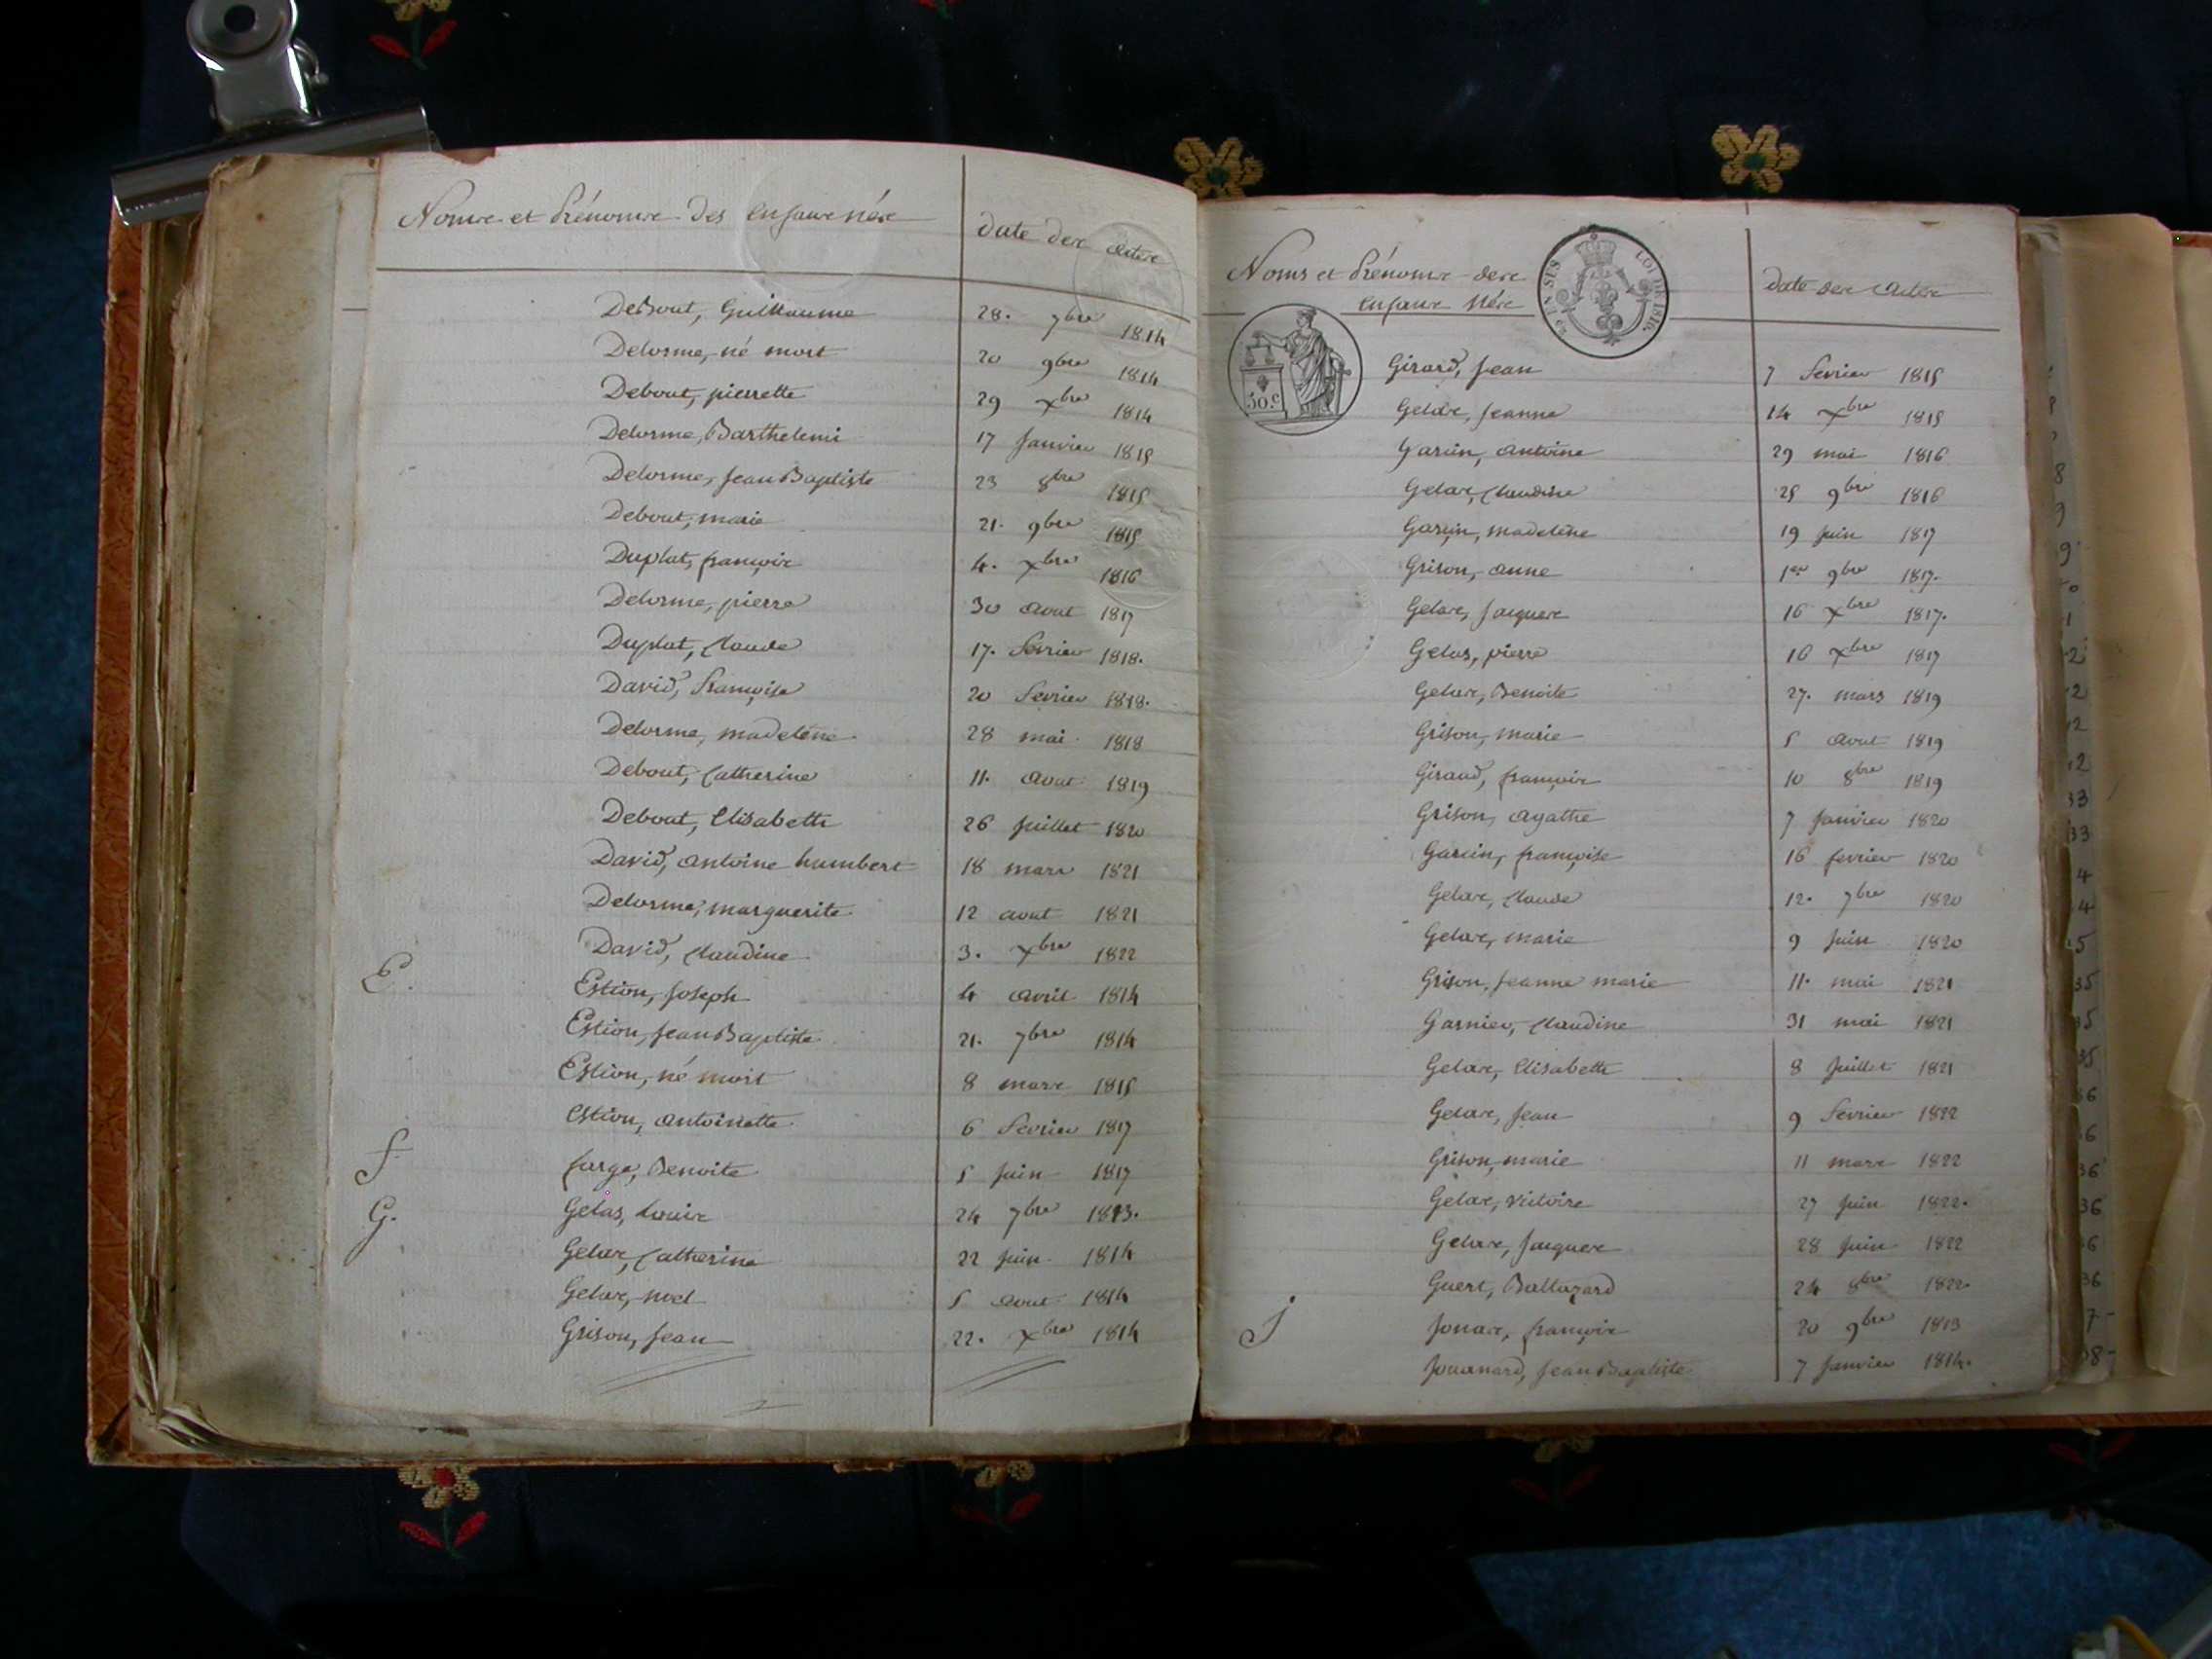 Noms et Prénoms des enfans nés
date des actes
Debout, Guillaume 28. 7bre 1814
Delorme, né mort 20 9bre 1814
Debout, pierrette 29 Xbre 1814
Delorme, Barthelemi 17 Janvier 1815
Delorme, Jean Baptiste 23 8bre 1815
Debout, marie 21. 9bre 1815
Duplat, françois 4. Xbre 1816
Delorme, pierre 30 aout 1817
Duplat, Claude 17. fevrier 1818.
David, françoise 20 fevrier 1818.
Delorme, madelène 28 mai 1818
Debout, Catherine 11. aout 1819
Debout, Elisabeth 26 Juillet 1820
David, antoine humbert 18 mars 1821
Delorme, marguerite 12 aout 1821
David, Claudine 3. Xbre 1822
E. Estion, Joseph 4 avril 1814
Estion, Jean Baptiste 21. 7bre 1814
Estion, né mort 8 mars 1815
Estion, antoinette 6 fevrier 1817
f farge, Benoite 5 Juin 1817
G. Gelas, Louis 24 7bre 1813.
Gelas, Catherine 22 Juin 1814
Gelas, noel 5 aout 1814
Grison, Jean 22. Xbre 1814
Noms et Prénoms des
enfans nés
date des actes
LOI DE 1816.
50.c
Girard, Jean 7 fevrier 1815
Gelas, Jeanne 14 Xbre 1815
Garcin, antoine 29 mai 1816
Gelas, Claudine 25 9bre 1816
Garcin, madelène 19 Juin 1817
Grison, anne 1er 9bre 1817.
Gelas, Jacques 16 Xbre 1817.
Gelas, pierre 16 Xbre 1817
Gelas, Benoite 27. mars 1819
Grison, marie 5 aout 1819
Giraud, françois 10 8bre 1819
Grison, agathe 7 Janvier 1820
Garcin, françoise 16 fevrier 1820
Gelas, Claude 12. 7bre 1820
Gelas, marie 9 Juin 1820
Grison, Jeanne marie 11. mai 1821
Garnier, Claudine 31 mai 1821
Gelas, Elisabeth 8 Juillet 1821
Gelas, Jean 9 fevrier 1822
Grison, marie 11 mars 1822
Gelas, victoire 27 Juin 1822.
Gelas, Jacques 28 Juin 1822
Guert, Baltazard 24 8bre 1822.
J Jonas, françois 20 9bre 1813
Jouanard, Jean Baptiste 7 Janvier 1814.